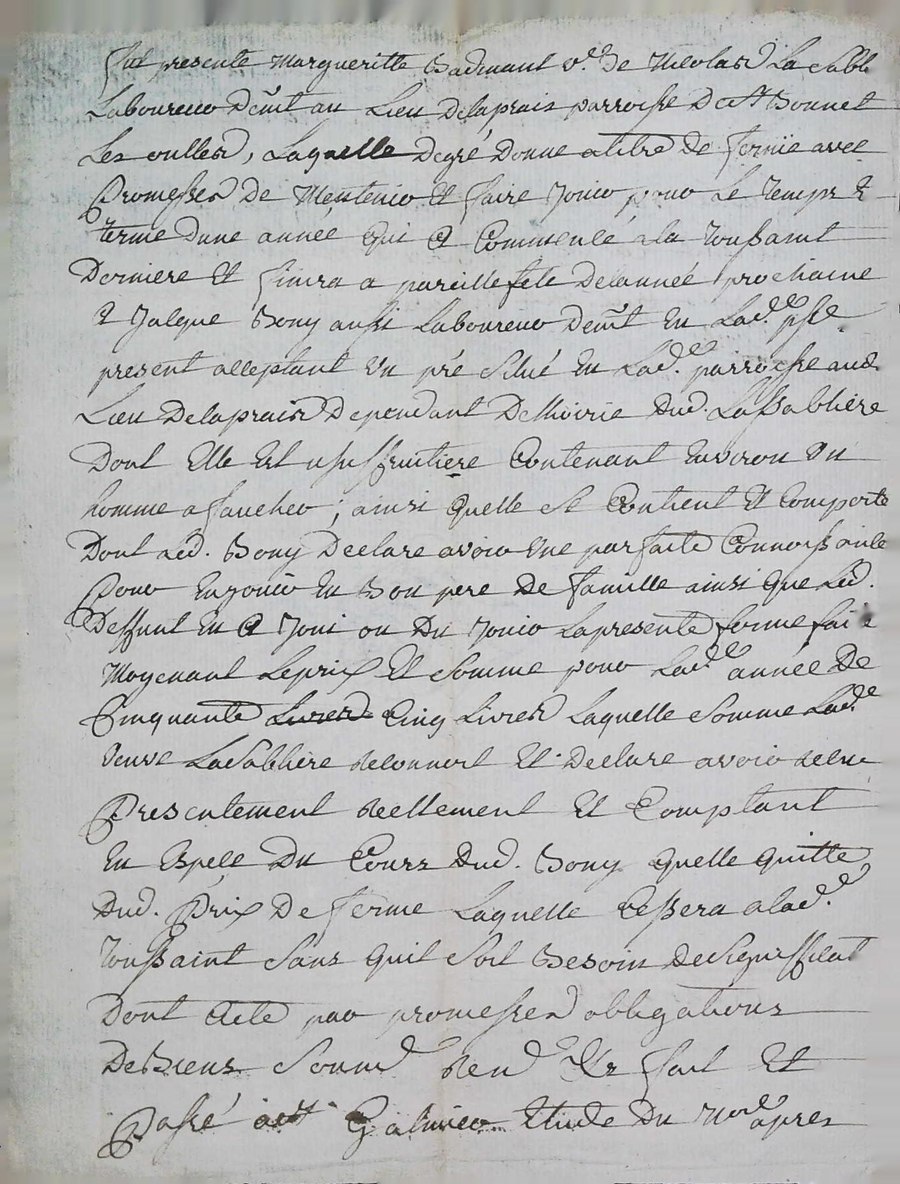 fut presente margueritte Badinant v.e de Nicolas La sabl
Laboureur dem̃t au Lieu delaprais parroisse de St Bonnet
Les oulles, Laquelle degré donne atitre de ferme avec
Promesses de Mentenir Et faire Jouir pour Le temps &
terme dune année qui a Commencé ala toussaint
Derniere Et finira a pareille fete delannée prochaine
a Jacque Bony aussi Laboureur dem̃t En Lad.e psse
present acceptant Un pré situé En Lad.e parroisse aud.
Lieu Delaprais Dependant De lhoirie dud. Lassabliere
Dont Elle Est usuffruitiere Contenant Environ Un
homme a faucher ; ainsi quelle se Contient Et Comporte
Dont led. Bony Declare avoir Une parfaite Connoissance
Pour Enjouir En Bon pere De famille ainsi que Led.
Deffunt En a Joui ou Du Jouir Lapresente ferme faite
Moyenant Leprix Et somme pour Lad.e année De
Cinquante Livres Cinq Livres Laquelle somme Lad.e
veuve Lasabliere reconnoit Et Declare avoir recue
Presentement reellement Et Comptant
En Espece Du Cours dud. Bony quelle quitte
Dud. Prix De ferme Laquelle Cessera alad.e
toussaint sans quil soit Besoin designifficat
Dont acte par promesses obligations
De Biens soum.s ren.s &c fait Et
Passé a St Galmier Etude Du no.re apres